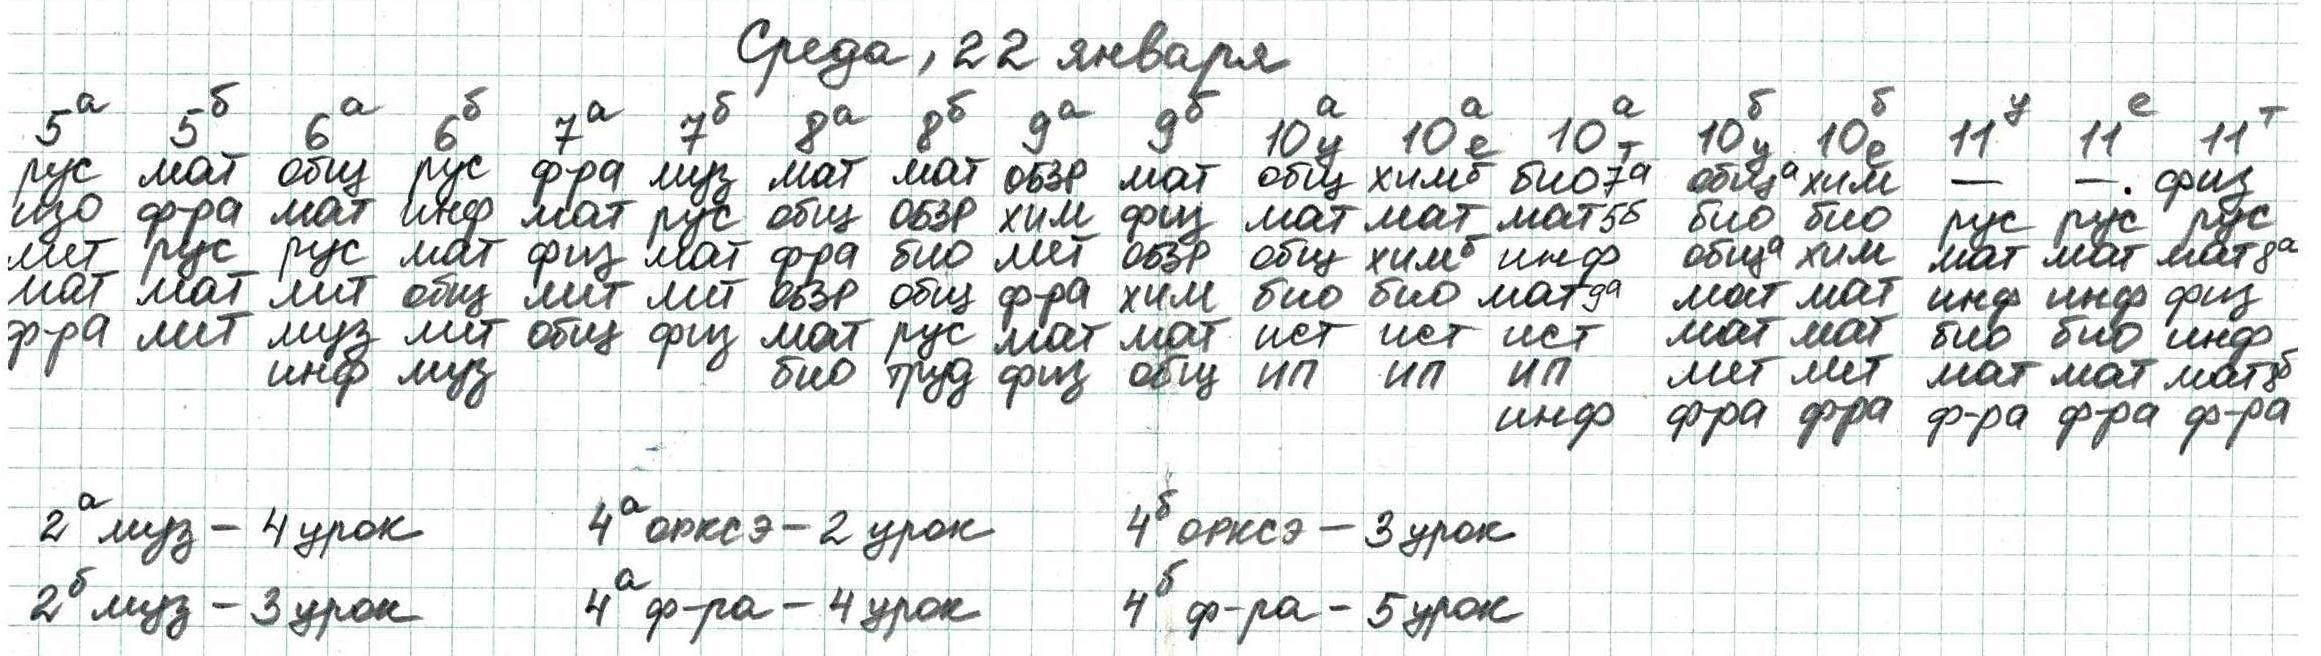 Среда, 22 января
5а 5б 6а 6б 7а 7б 8а 8б 9а 9б 10ау 10ае 10ат 10бу 10бе 11у 11е 11т
рус мат общ рус ф-ра муз мат мат ОБЗР мат общ химб био7а обща хим — —. физ
изо ф-ра мат инф мат рус общ ОБЗР хим физ мат мат мат5б био био рус рус рус
лит рус рус мат физ мат ф-ра био лит ОБЗР общ химб инф обща хим мат мат мат8а
мат мат лит общ лит лит ОБЗР общ ф-ра хим био био мат9а мат мат инф инф физ
ф-ра лит муз лит общ физ мат рус мат мат ист ист ист мат мат био био инф
инф муз био труд физ общ ИП ИП ИП лит лит мат мат мат8б
инф ф-ра ф-ра ф-ра ф-ра ф-ра
2а муз – 4 урок 4а орксэ – 2 урок 4б орксэ – 3 урок
2б муз – 3 урок 4а ф-ра – 4 урок 4б ф-ра – 5 урок